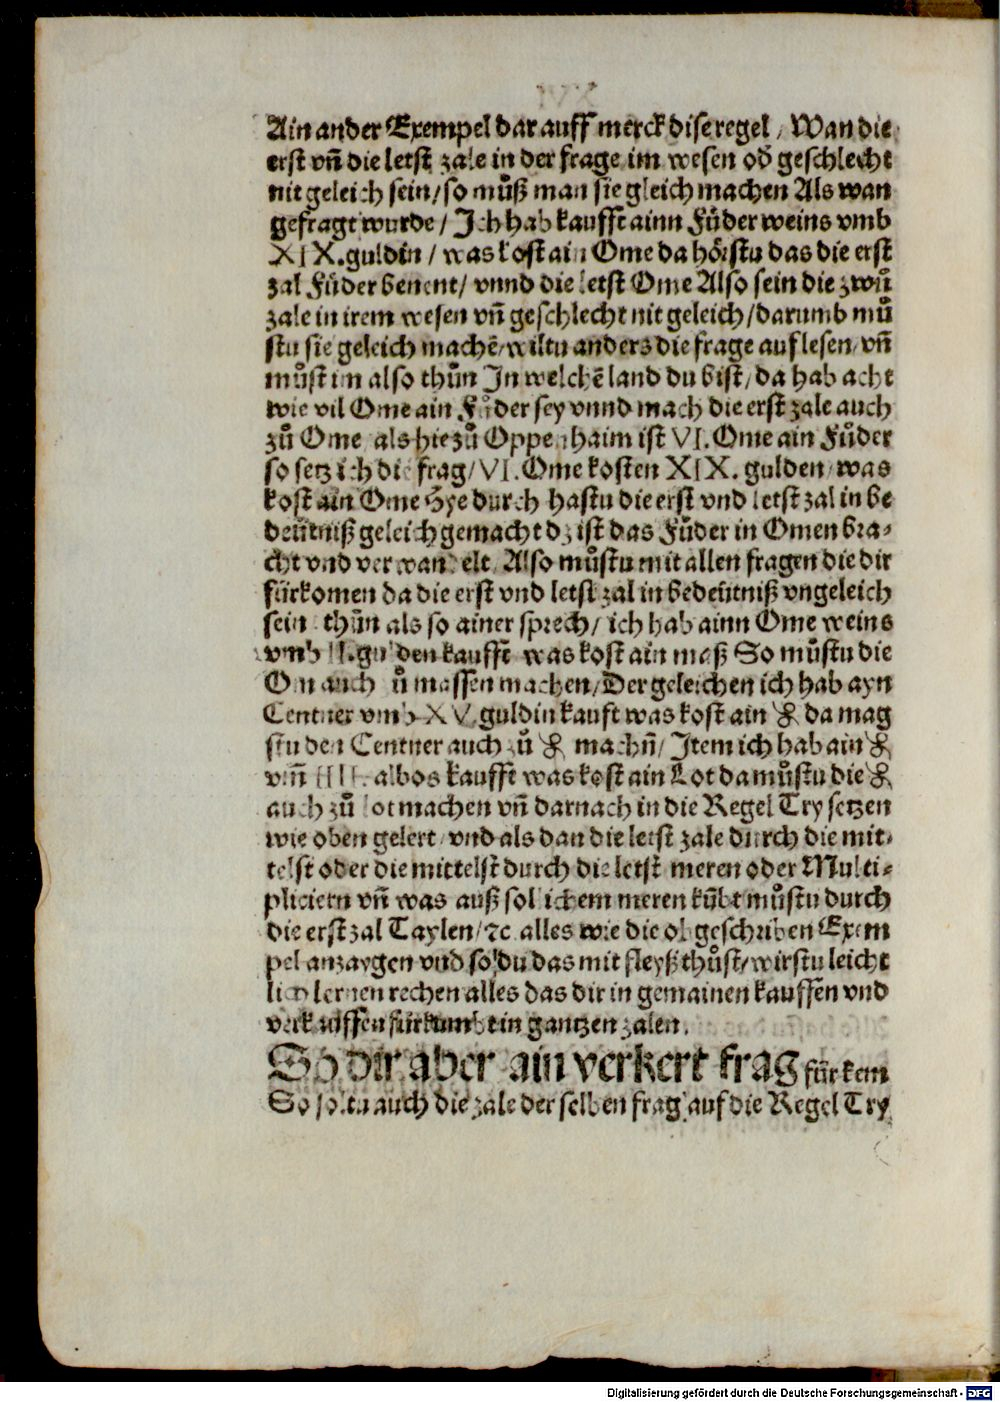 Ain ander Exempel dar auff merck dise regel / Wan die
erst vñ die letst zale in der frage im wesen oď geschlecht
nit geleich sein / so můß man sie gleich machen Als wan
gefragt wurde / Ich hab kaufft ainn Fůder weins vmb
XIX. guldin / was kost ain Ome da hörstu das die erst
zal Fůder benent / vnnd die letst Ome Also sein die zwů
zale in irem wesen vñ geschlecht nit geleich / darumb můſ
stu sie geleich machē / wiltu anders die frage auflesen / vñ
můst im also thůn In welchē land du bist / da hab acht
wie vil Ome ain Fůder sey vnnd mach die erst zale auch
zů Ome / als hie zů Oppenhaim ist VI. Ome ain Fůder
so setz ich die frag / VI. Ome kosten XIX. gulden / was
kost ain Ome Hye durch hastu die erst vnd letst zal in be
deütniß geleich gemacht dz ist das Fůder in Omen bra⸗
cht vnd verwandelt / Also můstu mit allen fragen die dir
fürkomen da die erst vnd letst zal in bedeütniß vngeleich
sein / thůn als so ainer sprech / ich hab ainn Ome weins
vmb II. gulden kaufft was kost ain maß So můstu die
Om auch zů massen machen / Der geleichen ich hab ayn
Centner vmb XV. guldin kauft was kost ain ℔ da mag
stu den Centner auch zů ℔ machñ / Item ich hab ain ℔
vm̃ IIII. albos kaufft was kost ain Lot da můstu die ℔
auch zů lot machen vñ darnach in die Regel Try setzen
wie oben gelert / vnd als dan die letst zale durch die mit⸗
telst oder die mittelst durch die letst meren oder Multi⸗
pliciern vñ was auß sollichem meren kūbt můstu durch
die erst zal Taylen / ⁊c. alles wie die obgeschriben Exem
pel anzaygen vnd so du das mit fleyß thůst / wirstu leicht
lich lernen rechen alles das dir in gemainen kauffen vnd
verkauffen fürkumbt in gantzen zalen.
So dir aber ain verkert frag fürkem
So soltu auch die zale der selben frag auf die Regel Try
Digitalisierung gefördert durch die Deutsche Forschungsgemeinschaft - DFG